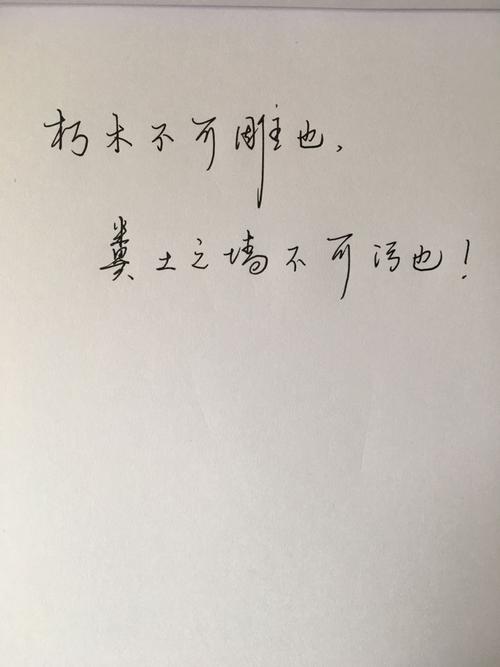 朽木不可雕也,
粪土之墙不可污也!